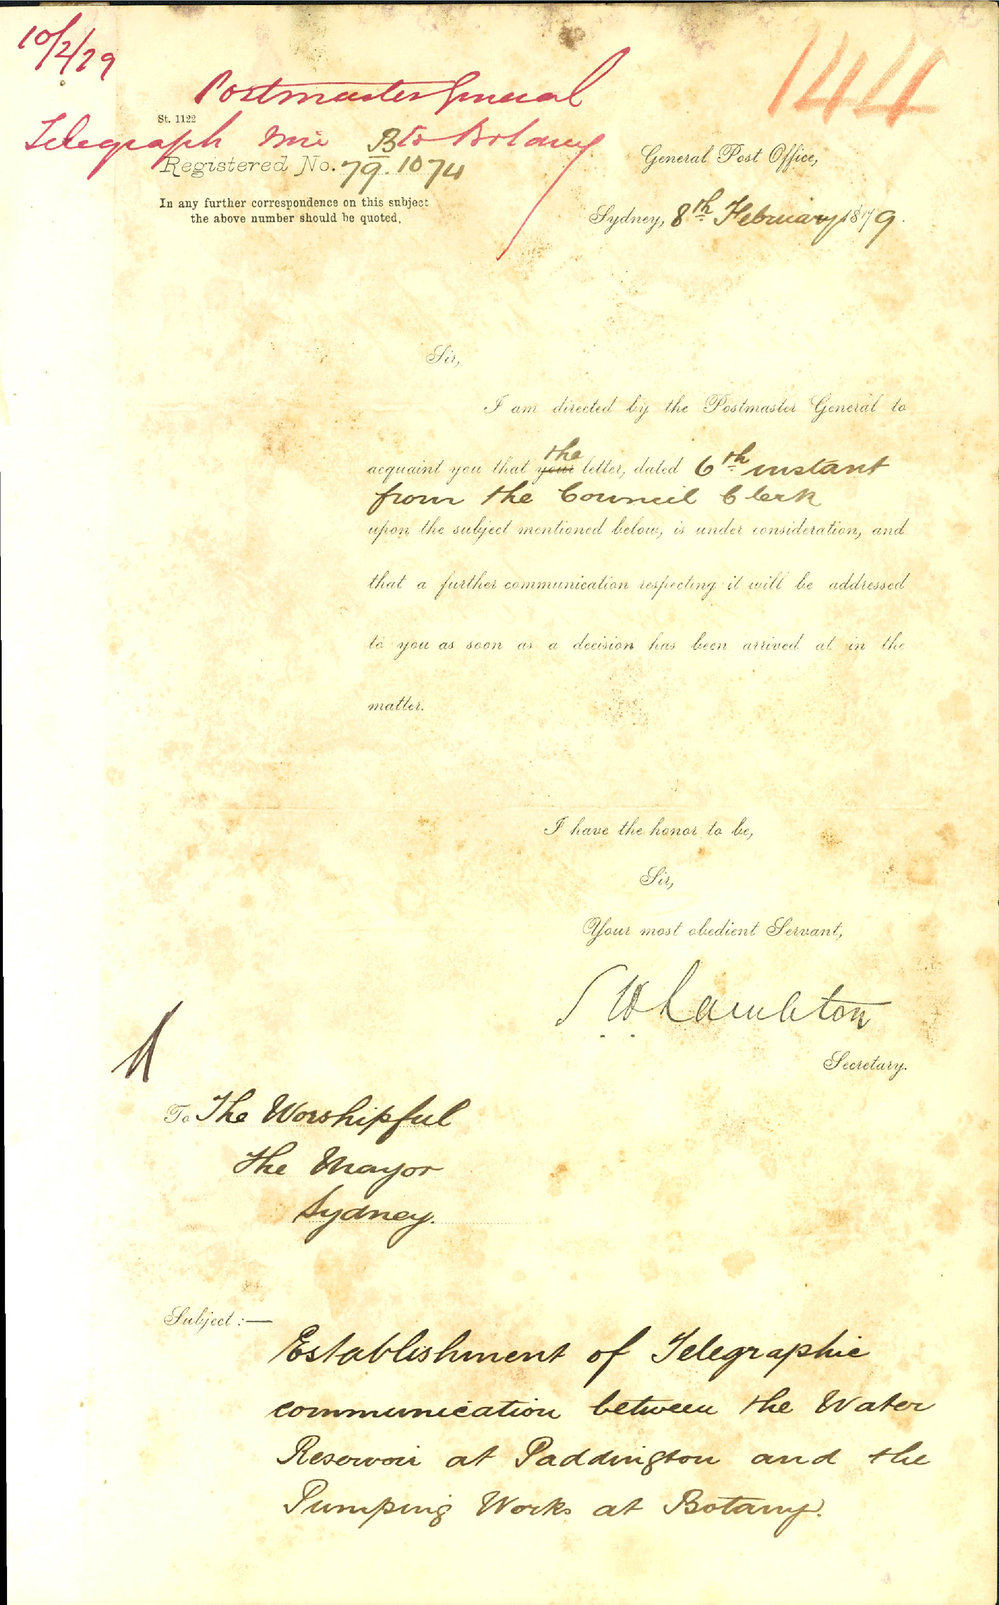 10/2/79
144
Postmaster General
St. 1122
Telegraph line to Botany
Registered No. B 79.1074
General Post Office,
In any further correspondence on this subject
the above number should be quoted.
Sydney, 8th February 1879.
Sir,
I am directed by the Postmaster General to
acquaint you that your the letter, dated 6th instant
from the Council Clerk
upon the subject mentioned below, is under consideration, and
that a further communication respecting it will be addressed
to you as soon as a decision has been arrived at in the
matter.
I have the honor to be,
Sir,
Your most obedient Servant,
S W Lambton
Secretary.
To The Worshipful
the Mayor
Sydney.
Subject :—
Establishment of Telegraphic
communication between the Water
Reservoir at Paddington and the
Pumping Works at Botany.